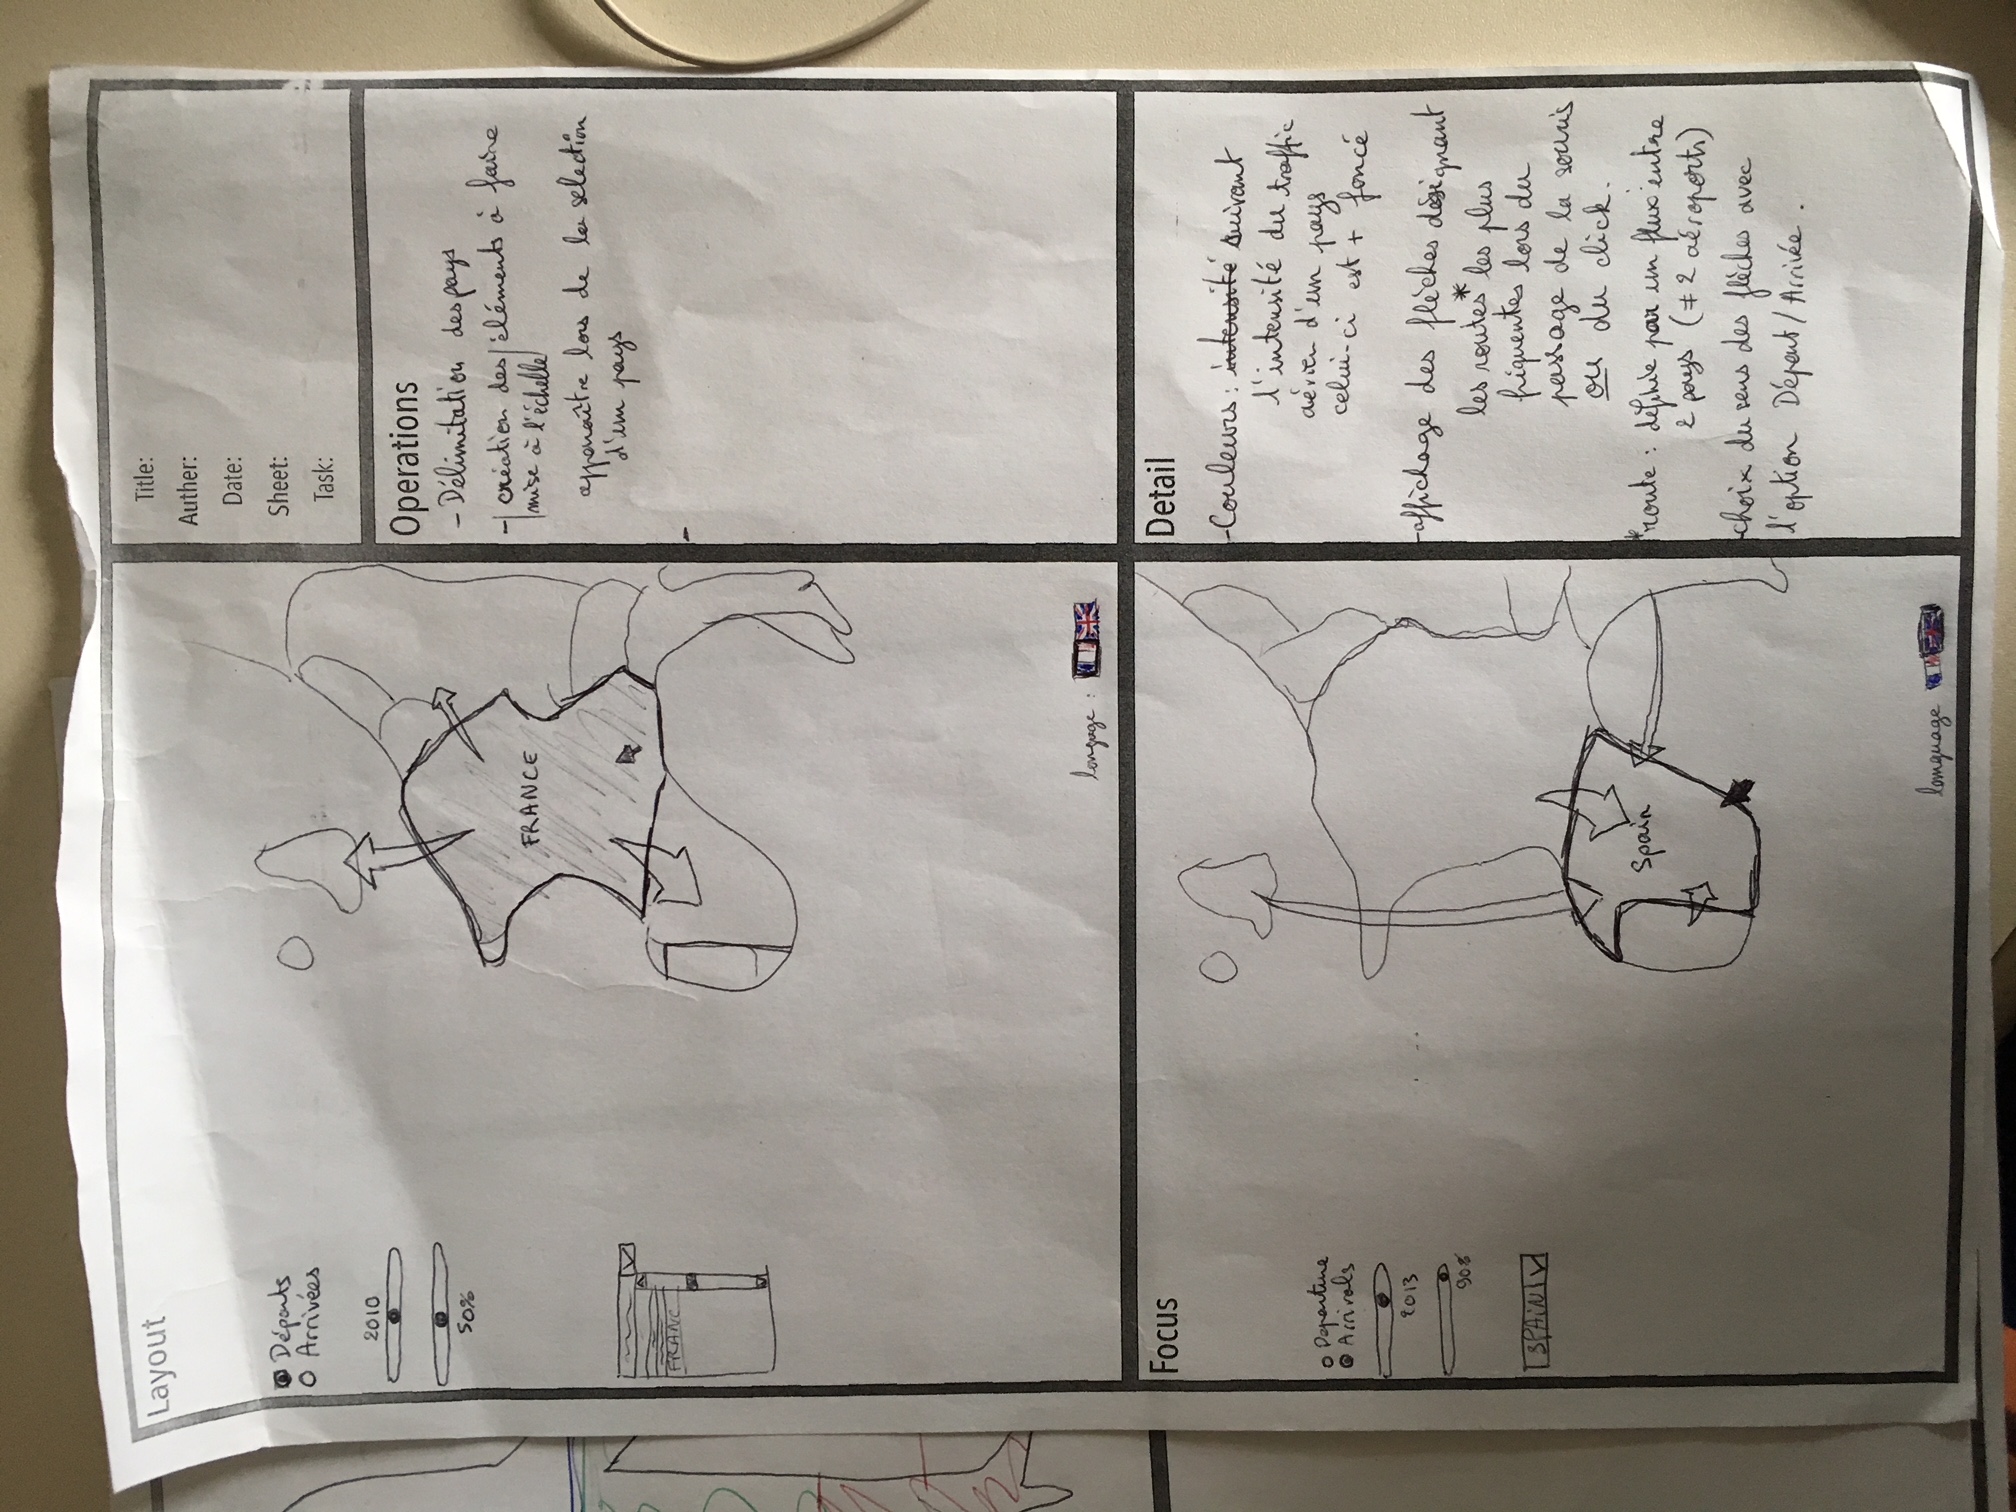 Layout
Départs
Arrivées
2010
50%
FRANCE
FRANCE
langage :
Title:
Auther:
Date:
Sheet:
Task:
Operations
- Délimitation des pays
- création des éléments à faire
mise à l'échelle
apparaître lors de la selection
d'un pays
-
Focus
Departure
Arrivals
2013
90%
SPAIN
Spain
language
Detail
- Couleurs : intensité suivant
l'intensité du traffic
aérien d'un pays
celui-ci est + foncé
- affichage des flèches désignant
les routes* les plus
fréquentes lors du
passage de la souris
ou du click.
*route : définie par un flux entre
2 pays (≠ 2 aéroports)
- choix du sens des flèches avec
l'option Départ/Arrivée.